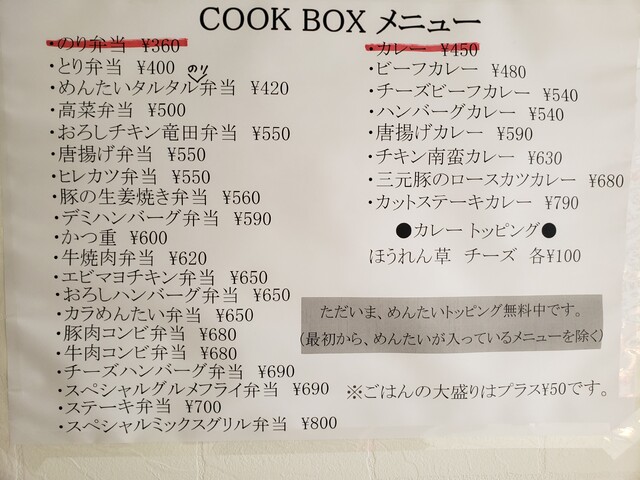 COOK BOX メニュー
・のり弁当 ¥360
・とり弁当 ¥400
のり
・めんたいタルタル弁当 ¥420
・高菜弁当 ¥500
・おろしチキン竜田弁当 ¥550
・唐揚げ弁当 ¥550
・ヒレカツ弁当 ¥550
・豚の生姜焼き弁当 ¥560
・デミハンバーグ弁当 ¥590
・かつ重 ¥600
・牛焼肉弁当 ¥620
・エビマヨチキン弁当 ¥650
・おろしハンバーグ弁当 ¥650
・カラめんたい弁当 ¥650
・豚肉コンビ弁当 ¥680
・牛肉コンビ弁当 ¥680
・チーズハンバーグ弁当 ¥690
・スペシャルグルメフライ弁当 ¥690
・ステーキ弁当 ¥700
・スペシャルミックスグリル弁当 ¥800
・カレー ¥450
・ビーフカレー ¥480
・チーズビーフカレー ¥540
・ハンバーグカレー ¥540
・唐揚げカレー ¥590
・チキン南蛮カレー ¥630
・三元豚のロースカツカレー ¥680
・カットステーキカレー ¥790
●カレートッピング●
ほうれん草 チーズ 各¥100
ただいま、めんたいトッピング無料中です。
(最初から、めんたいが入っているメニューを除く)
※ごはんの大盛りはプラス¥50です。